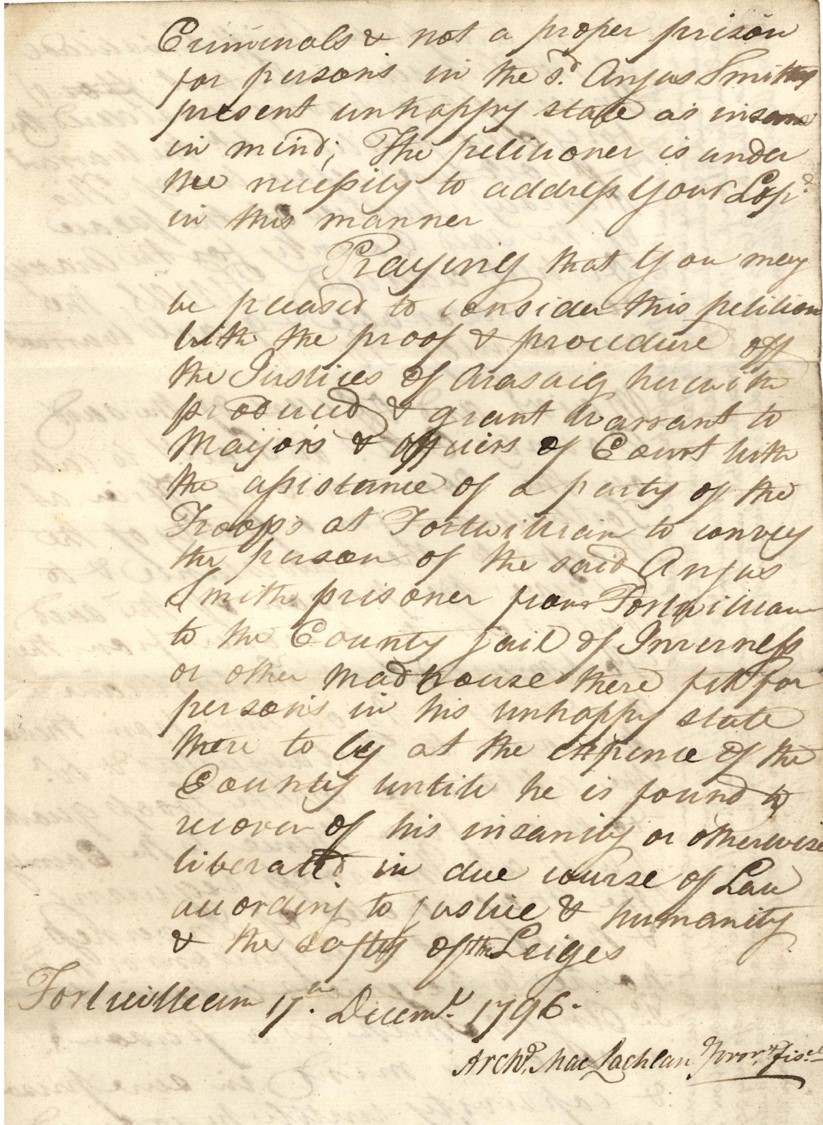 Criminals & not a proper prison
for persons in the sd. Angus Smiths
present unhappy state as insane
in mind; The petitioner is under
the necessity to address Your Lop.
in this manner
Praying that You may
be pleased to consider this petition
with the proof & procedure off
the Justices of Arasaig herwith
produced & grant warrant to
Majors & officers of Court with
the assistance of a party of the
Troops at Fortwilliam to convey
the person of the said Angus
Smith prisoner from Fortwilliam
to the County Jail of Inverness
or other madhouse there fitt for
persons in his unhappy state
there to ly at the expence of the
County untill he is found to
recover of his insanity or otherwise
liberated in due course of Law
according to justice & humanity
& the safty of the Leiges
Fortwilliam 17th. Decemr. 1796.
Archd. MacLachlan Pror. Fiscl.